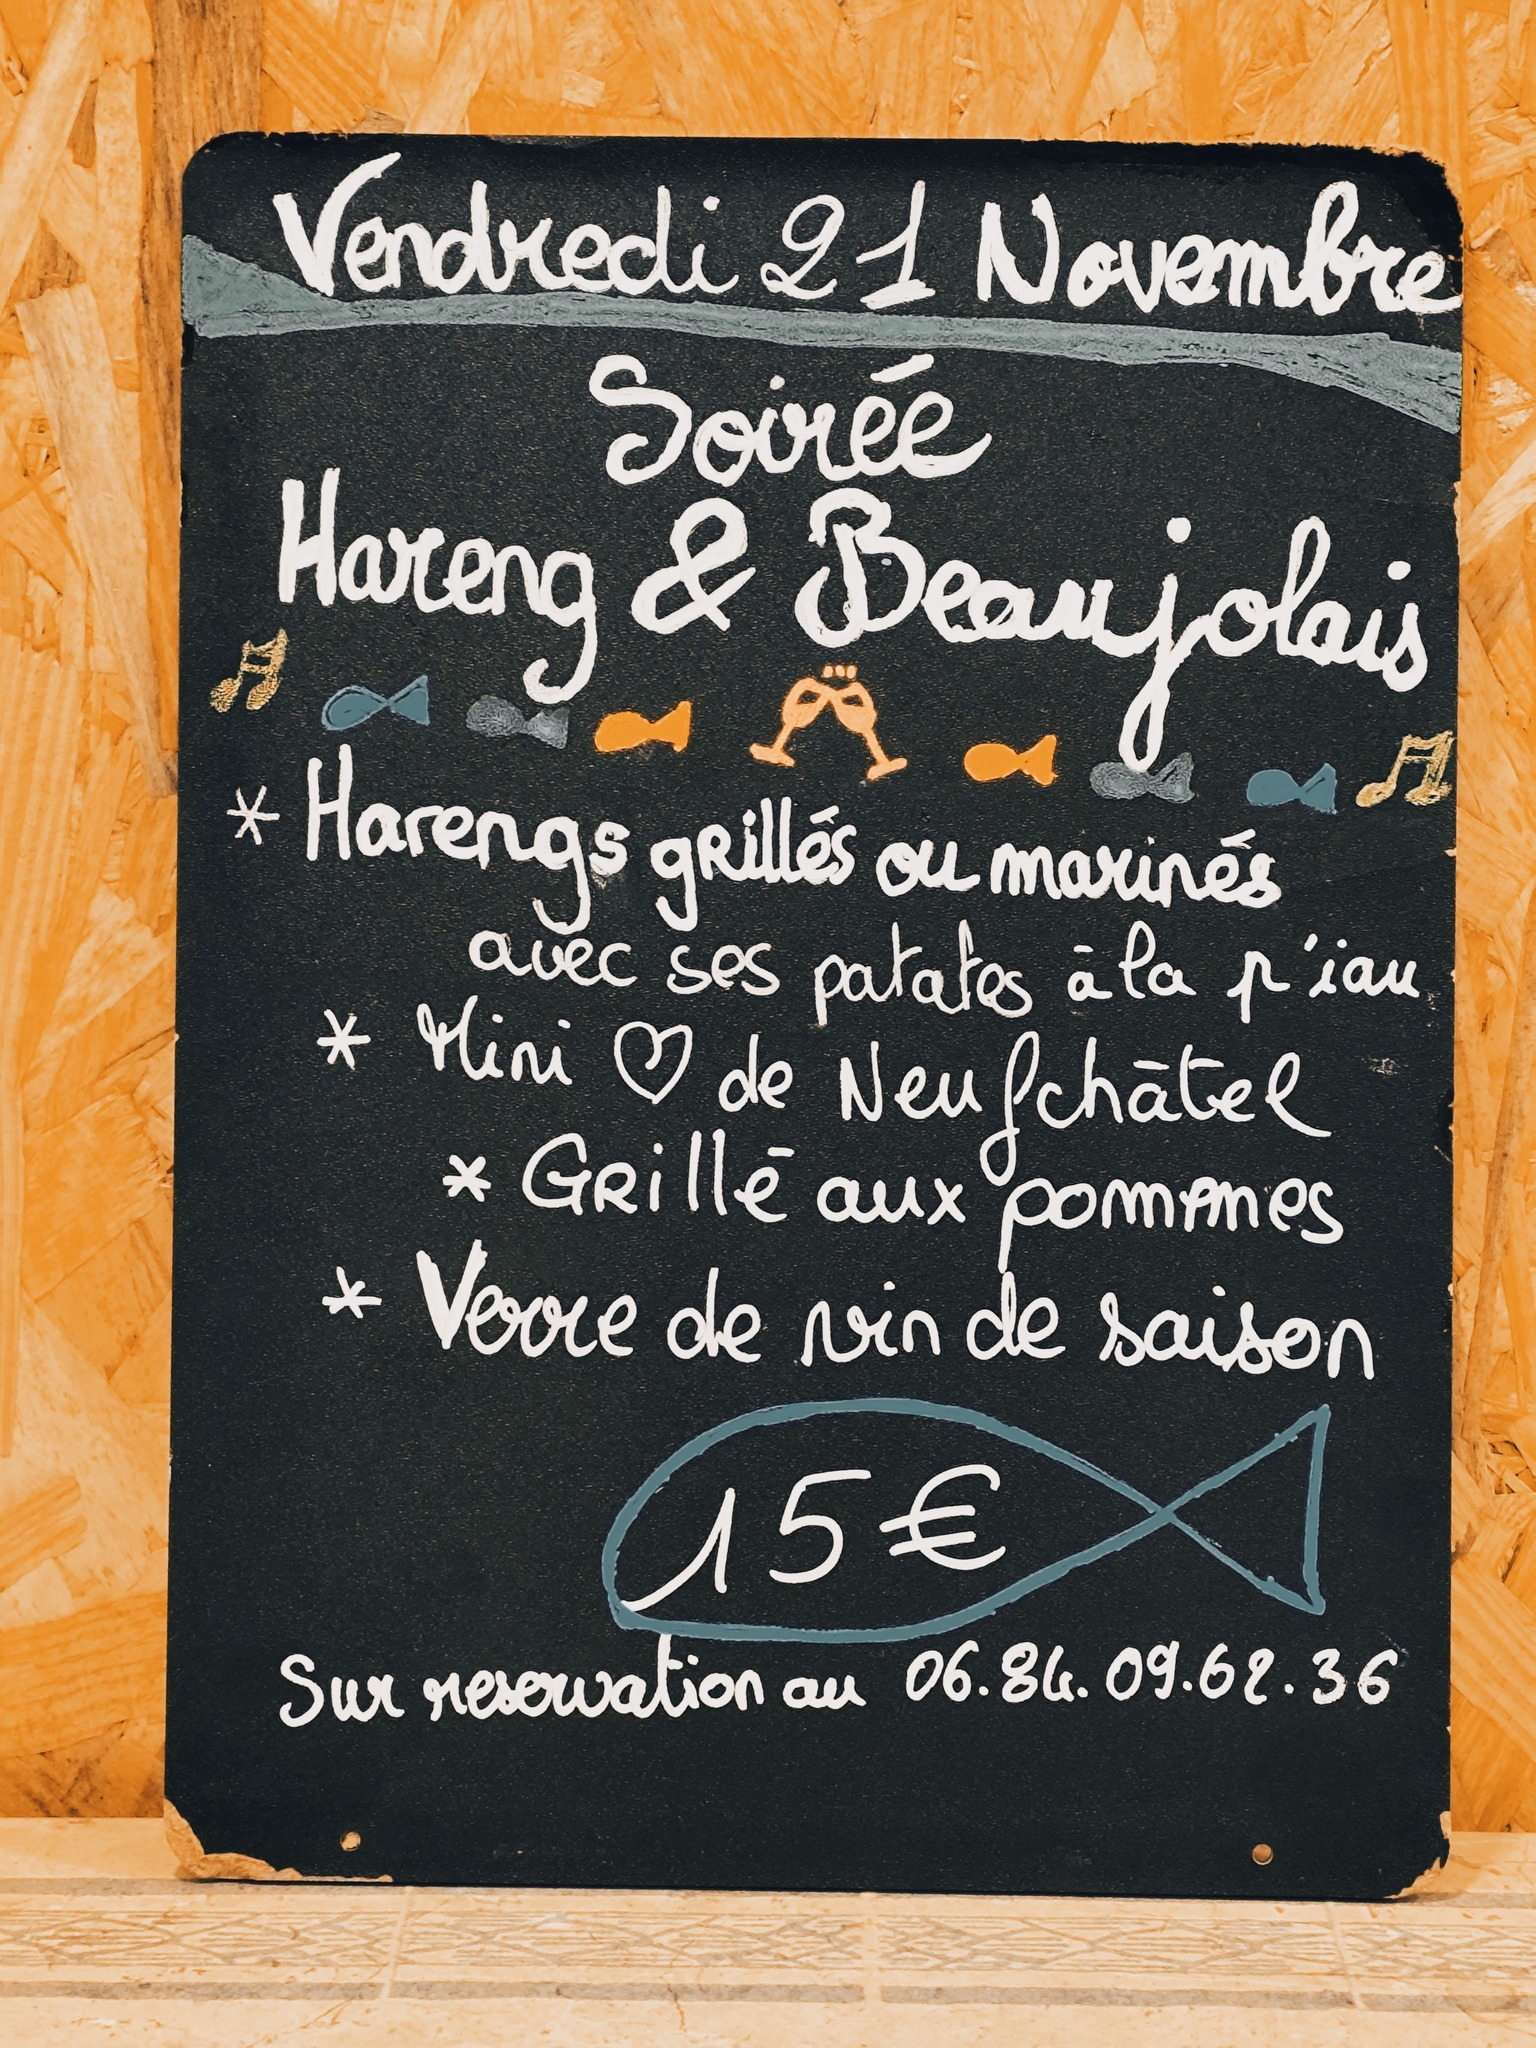 Vendredi 21 Novembre
Soirée
Hareng & Beaujolais
* Harengs grillés ou marinés
avec ses patates à la p'iau
* Mini ♡ de Neufchâtel
* Grillé aux pommes
* Verre de vin de saison
15€
Sur reservation au 06.84.09.62.36